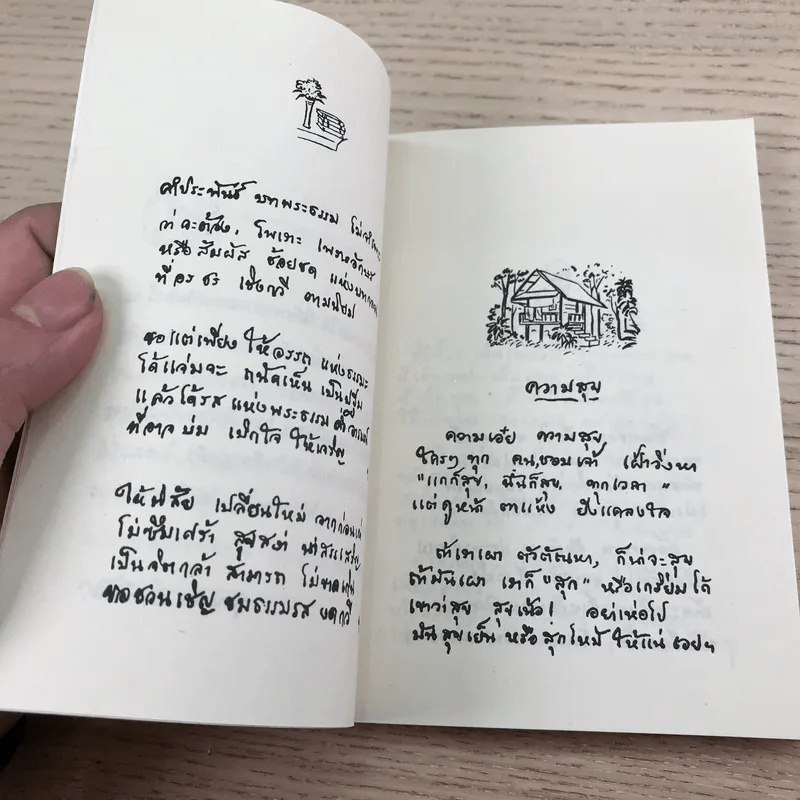 คำประพันธ์ บทพระธรรม
ว่าจะต้อง, ไพเราะ เพราะอักษร
หรือสัมผัส ช้อยชด แห่งบทกลอน
ที่อรชร เชิงกวี ตามนิยม
ขอแต่เพียง ให้อรรถ แห่งธรรมะ
ได้แจ่มจะ ถนัดเห็น เป็นปฐม
แล้วได้รส แห่งพระธรรม ด่ำอารมณ์
ที่อาจบ่ม เบิกใจ ให้เจริญ
ให้นิสัย เปลี่ยนใหม่ จากก่อนเก่า
ไม่ซึมเศร้า สุขสง่า น่าสรรเสริญ
เป็นจิตกล้า สามารถ ไม่ขาดเกิน
ขอชวนเชิญ ชมธรรมรส บทกวี
ความสุข
ความเอ๋ย ความสุข
ใครๆ ทุก คน,ชอบเจ้า เฝ้าวิ่งหา
"แกก็สุข, ฉันก็สุข, ทุกเวลา"
แต่ดูหน้า ตาแห้ง ยังแคลงใจ
ถ้าเราเผา ตัวตัณหา, ก็น่าจะสุข
ถ้ามันเผา เราก็ "สุก" หรือเกรียมได้
เขาว่าสุข สุขเน้อ! อย่าเห่อไป
มันสุขเย็น หรือสุกไหม้ ให้แน่ เอยฯ